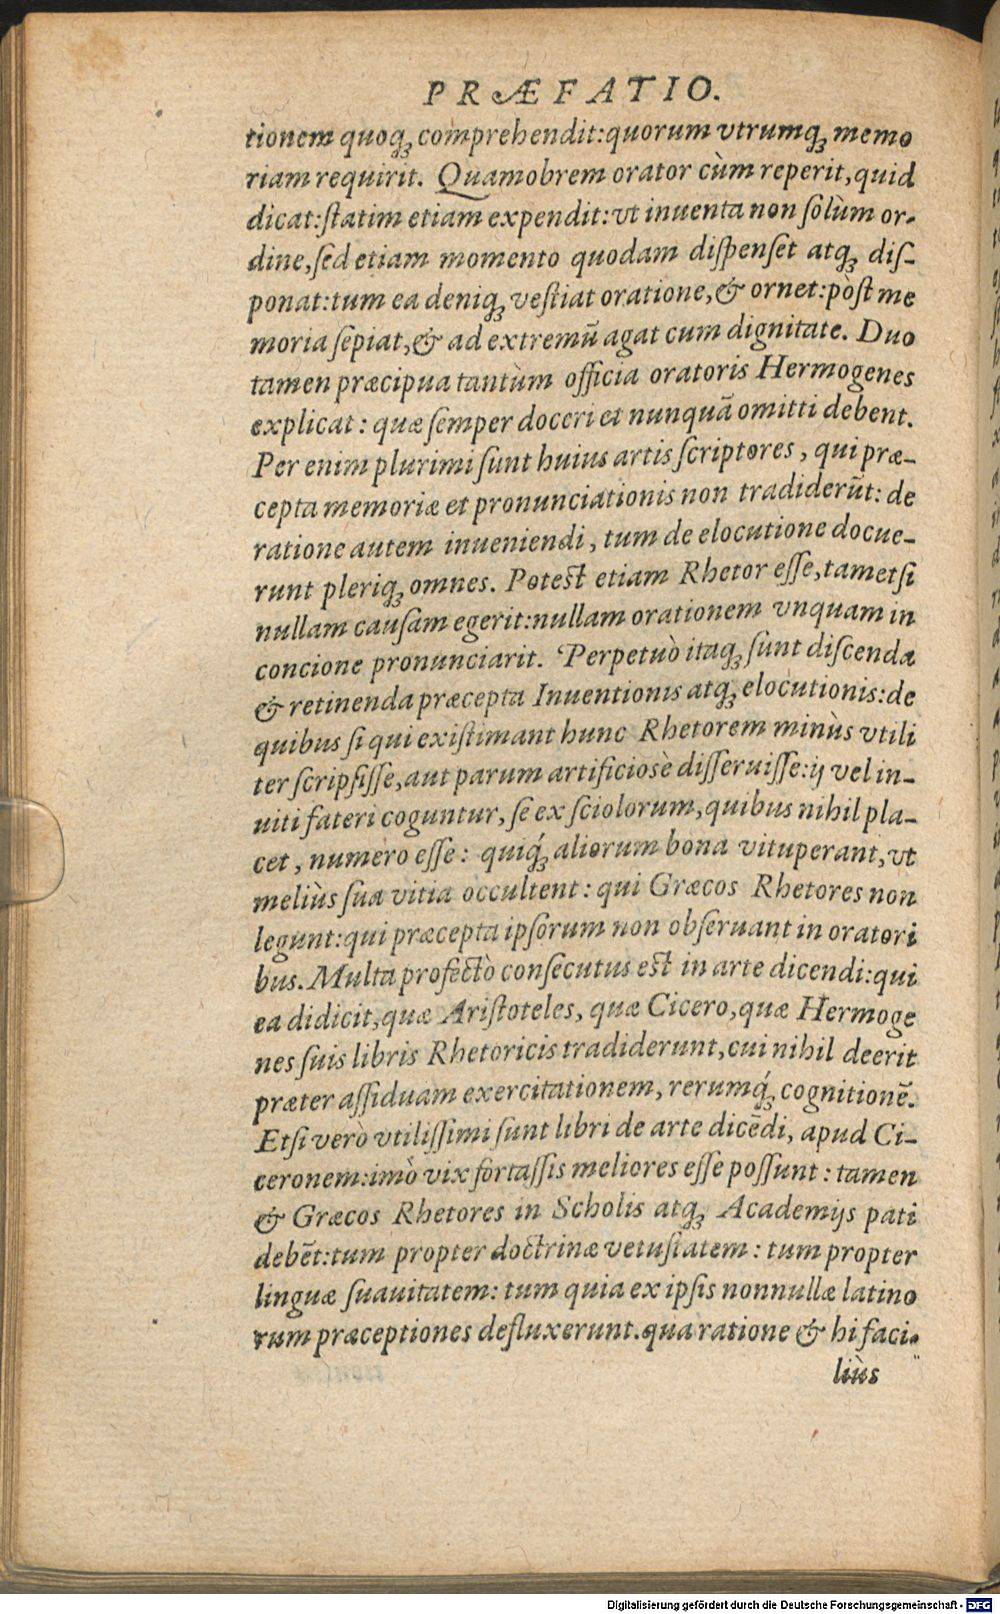 PRÆFATIO.
tionem quoq; comprehendit:quorum vtrumq; memo
riam requirit. Quamobrem orator cùm reperit, quid
dicat:ſtatim etiam expendit:vt inuenta non ſolùm or-
dine, ſed etiam momento quodam diſpenſet atq; diſ-
ponat:tum ea deniq; veſtiat oratione, & ornet:pòſt me
moria ſepiat, & ad extremū agat cum dignitate. Duo
tamen præcipua tantùm officia oratoris Hermogenes
explicat: quæ ſemper doceri et nunquā omitti debent.
Per enim plurimi ſunt huius artis ſcriptores, qui præ-
cepta memoriæ et pronunciationis non tradiderūt: de
ratione autem inueniendi, tum de elocutione docue-
runt pleriq; omnes. Potest etiam Rhetor eſſe, tametſi
nullam cauſam egerit:nullam orationem vnquam in
concione pronunciarit. Perpetuò itaq; ſunt diſcenda
& retinenda præcepta Inuentionis atq; elocutionis:de
quibus ſi qui exiſtimant hunc Rhetorem minùs vtili
ter ſcripſiſſe, aut parum artificiosè diſſeruiſſe:ij vel in-
uiti fateri coguntur, ſe ex ſciolorum, quibus nihil pla-
cet, numero eſſe: quiq́; aliorum bona vituperant, vt
meliùs ſua vitia occultent: qui Græcos Rhetores non
legunt:qui præcepta ipſorum non obſeruant in oratori
bus. Multa profectò conſecutus est in arte dicendi:qui
ea didicit, quæ Ariſtoteles, quæ Cicero, quæ Hermoge
nes ſuis libris Rhetoricis tradiderunt, cui nihil deerit
præter aſſiduam exercitationem, rerumq́; cognitionē.
Etſi verò vtiliſſimi ſunt libri de arte dicēdi, apud Ci-
ceronem:imò vix fortaſſis meliores eſſe poſſunt: tamen
& Græcos Rhetores in Scholis atq; Academijs pati
debēt:tum propter doctrinæ vetuſtatem: tum propter
linguæ ſuauitatem: tum quia ex ipſis nonnullæ latino
rum præceptiones defluxerunt. qua ratione & hi faci-
liùs
Digitalisierung gefördert durch die Deutsche Forschungsgemeinschaft - DFG